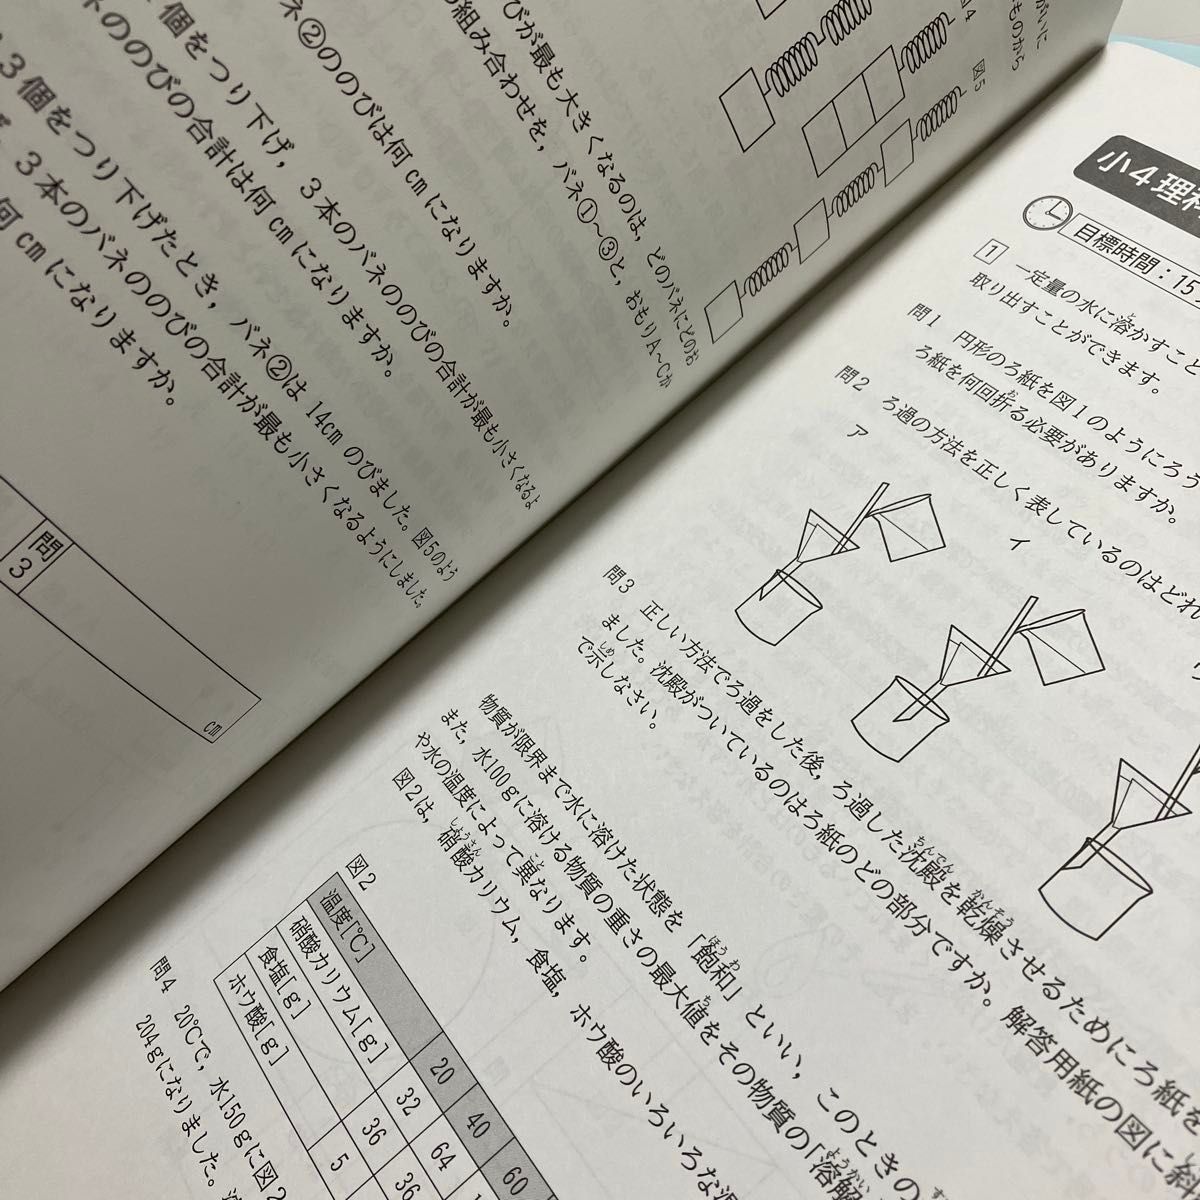 がいに
ものから
図4
図5
びが最も大きくなるのは，どのバネにどのお
組み合わせを，バネ①～③と，おもりA～Cか
ネ②ののびは何cmになりますか。
個をつり下げ，3本のバネののびの合計が最も小さくなるよ
ネののびの合計は何cmになりますか。
3個をつり下げたとき，バネ②は14cmのびました。図5のよう
，3本のバネののびの合計が最も小さくなるようにしました。
何cmになりますか。
問3
cm
小4理科
目標時間：15
1 一定量の水に溶かすこと
取り出すことができます。
問1 円形のろ紙を図1のようにろう
ろ紙を何回折る必要がありますか。
問2 ろ過の方法を正しく表しているのはどれ
ア
イ
問3 正しい方法でろ過をした後，ろ過した沈殿を乾燥させるためにろ紙を
ました。沈殿がついているのはろ紙のどの部分ですか。解答用紙の図に斜
で示しなさい。
物質が限界まで水に溶けた状態を「飽和」といい，このときの
また，水100gに溶ける物質の重さの最大値をその物質の「溶解
や水の温度によって異なります。
図2は，硝酸カリウム，食塩，ホウ酸のいろいろな温
図2
温度[℃] 20 40 60
硝酸カリウム[g] 32 64
食塩[g] 36 36
ホウ酸[g] 5
問4 20℃で，水150gに図2
204gになりました。